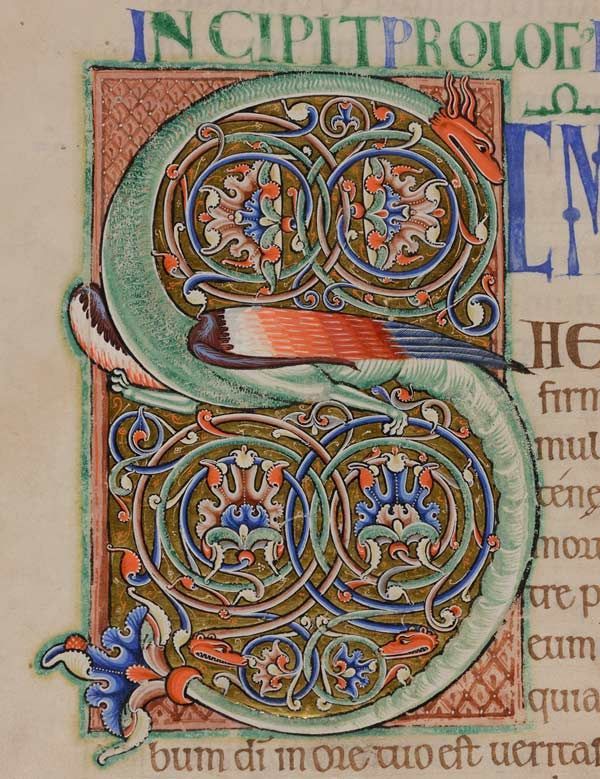 INCIPIT PROLOG⁹
S
EM
HE
firm
mul
téne
mort
tre p
eum
quia
bum di in ore tuo est ueritas